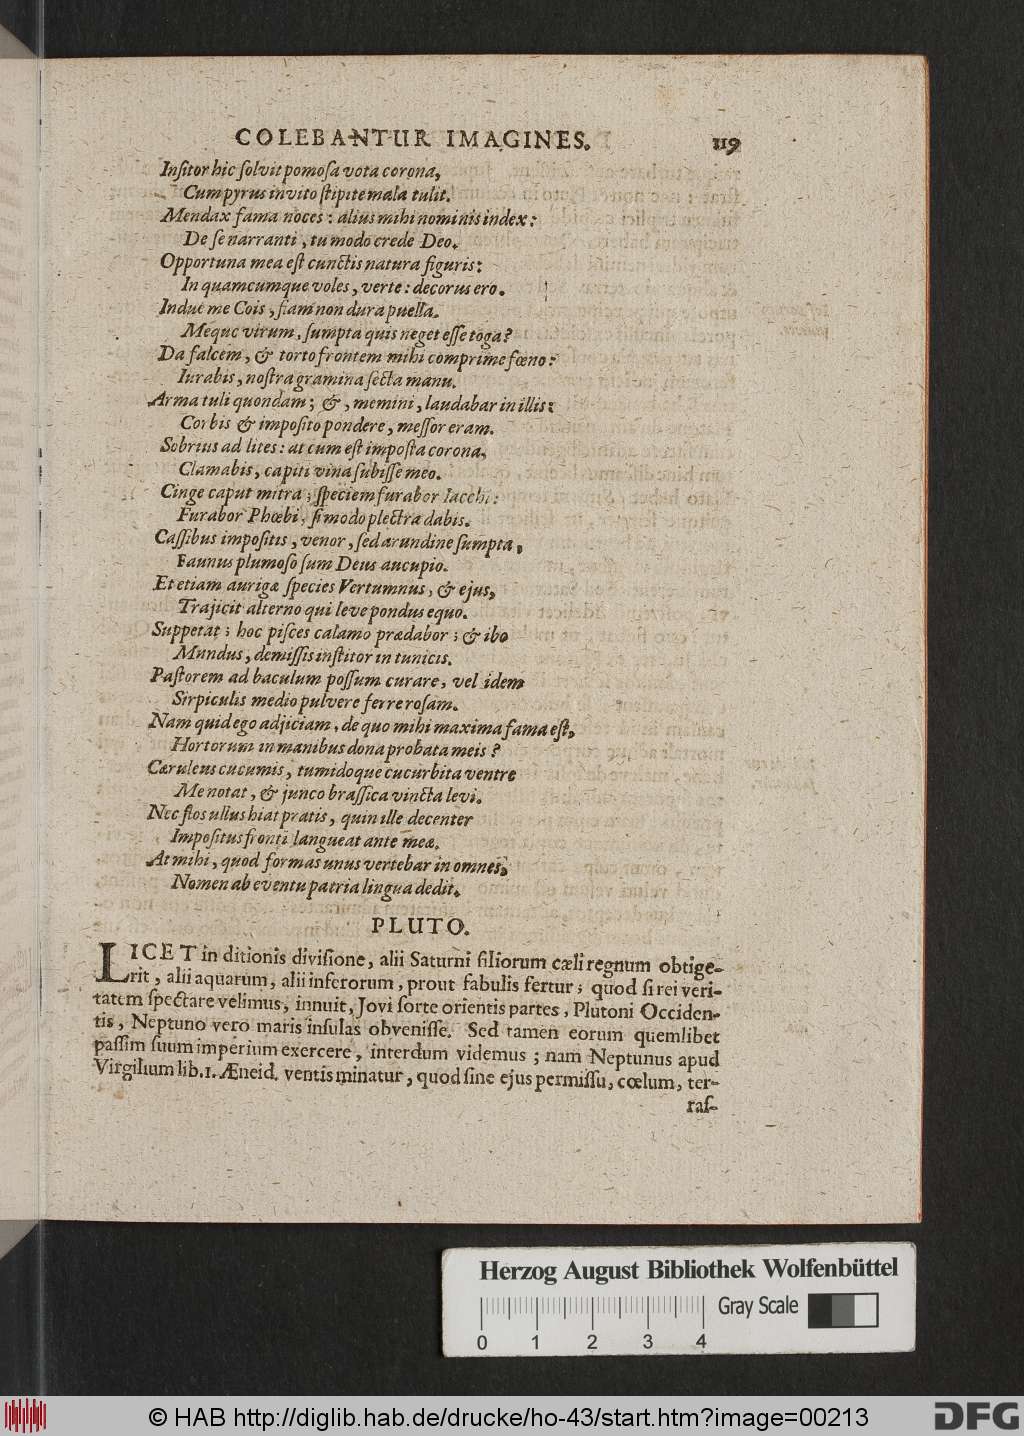 COLEBANTUR IMAGINES. 119
Inſitor hic ſolvit pomoſa vota corona,
Cum pyrus invito ſtipite mala tulit.
Mendax fama noces: alius mihi nominis index:
De ſe narranti, tu modo crede Deo.
Opportuna mea eſt cunctis natura figuris:
In quamcumque voles, verte: decorus ero.
Indue me Cois, fiam non dura puella.
Meque virum, ſumpta quis neget eſſe toga?
Da falcem, & torto frontem mihi comprime fœno:
Iurabis, noſtra gramina ſecta manu.
Arma tuli quondam; &, memini, laudabar in illis:
Corbis & impoſito pondere, meſſor eram.
Sobrius ad lites: at cum eſt impoſta corona,
Clamabis, capiti vina ſubiſſe meo.
Cinge caput mitra; ſpeciem furabor Iacchi:
Furabor Phœbi, ſi modo plectra dabis.
Caſſibus impoſitis, venor, ſed arundine ſumpta,
Faunus plumoſo ſum Deus aucupio.
Et etiam aurigæ ſpecies Vertumnus, & ejus,
Trajicit alterno qui leve pondus equo.
Suppetat; hoc piſces calamo prædabor; & ibo
Mundus, demiſſis inſtitor in tunicis.
Paſtorem ad baculum poſſum curare, vel idem
Sirpiculis medio pulvere ferre roſam.
Nam quid ego adjiciam, de quo mihi maxima fama eſt,
Hortorum in manibus dona probata meis?
Cæruleus cucumis, tumidoque cucurbita ventre
Me notat, & junco braſſica vincta levi.
Nec flos ullus hiat pratis, quin ille decenter
Impoſitus fronti langueat ante meæ.
At mihi, quod formas unus vertebar in omnes,
Nomen ab eventu patria lingua dedit.
PLUTO.
LICET in ditionis diviſione, alii Saturni filiorum cæli regnum obtige-
rit, alii aquarum, alii inferorum, prout fabulis fertur; quod ſi rei veri-
tatem ſpectare velimus, innuit, Jovi ſorte orientis partes, Plutoni Occiden-
tis, Neptuno vero maris inſulas obveniſſe. Sed tamen eorum quemlibet
paſſim ſuum imperium exercere, interdum videmus; nam Neptunus apud
Virgilium lib. 1. Æneid. ventis minatur, quod ſine ejus permiſſu, cœlum, ter-
raſ-
Herzog August Bibliothek Wolfenbüttel
Gray Scale
0 1 2 3 4
© HAB http://diglib.hab.de/drucke/ho-43/start.htm?image=00213
DFG